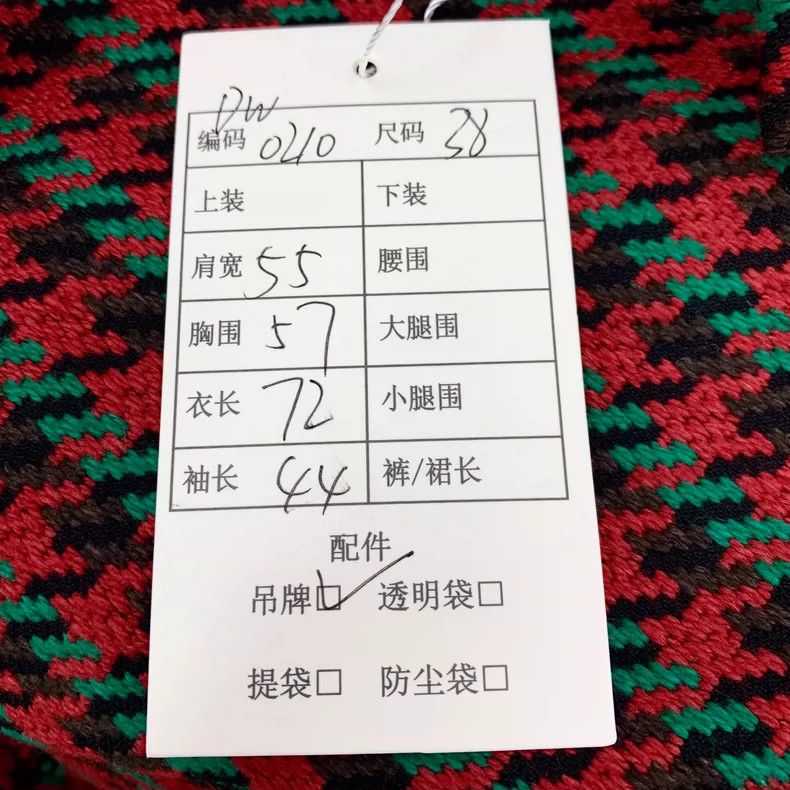 DW
编码 0210 尺码 38
上装 下装
肩宽 55 腰围
胸围 57 大腿围
衣长 72 小腿围
袖长 44 裤/裙长
配件
吊牌☑ 透明袋□
提袋□ 防尘袋□